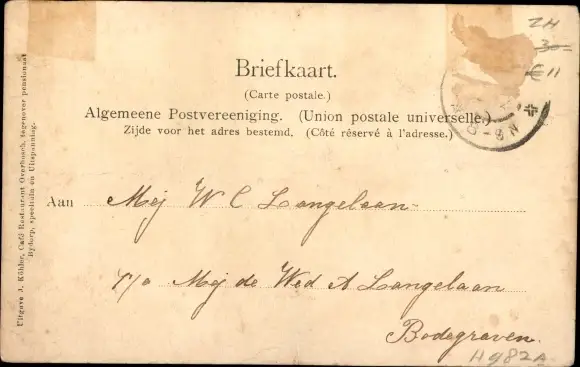 Briefkaart.
(Carte postale.)
Algemeene Postvereeniging. (Union postale universelle.)
Zijde voor het adres bestemd. (Côté réservé à l'adresse.)
Aan Mej W C Langelaan
p/a Mej de Wed A Langelaan
Bodegraven.
H982A
ZH
30=
€11
8-9N
Uitgave J. Köhler, Café Restaurant Overbosch, tegenover pensionaat
speeltuin en Uitspanning.